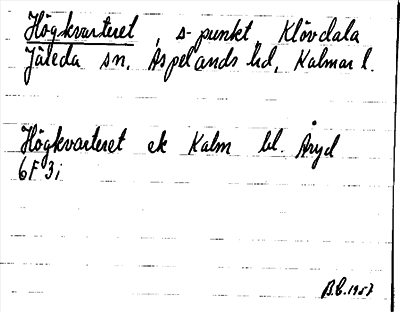 Högkvarteret, s-punkt, Klövdala
Järeda sn, Aspelands hd, Kalmar l.
Högkvarteret ek Kalm bl. Åryd
6F 3i
1957